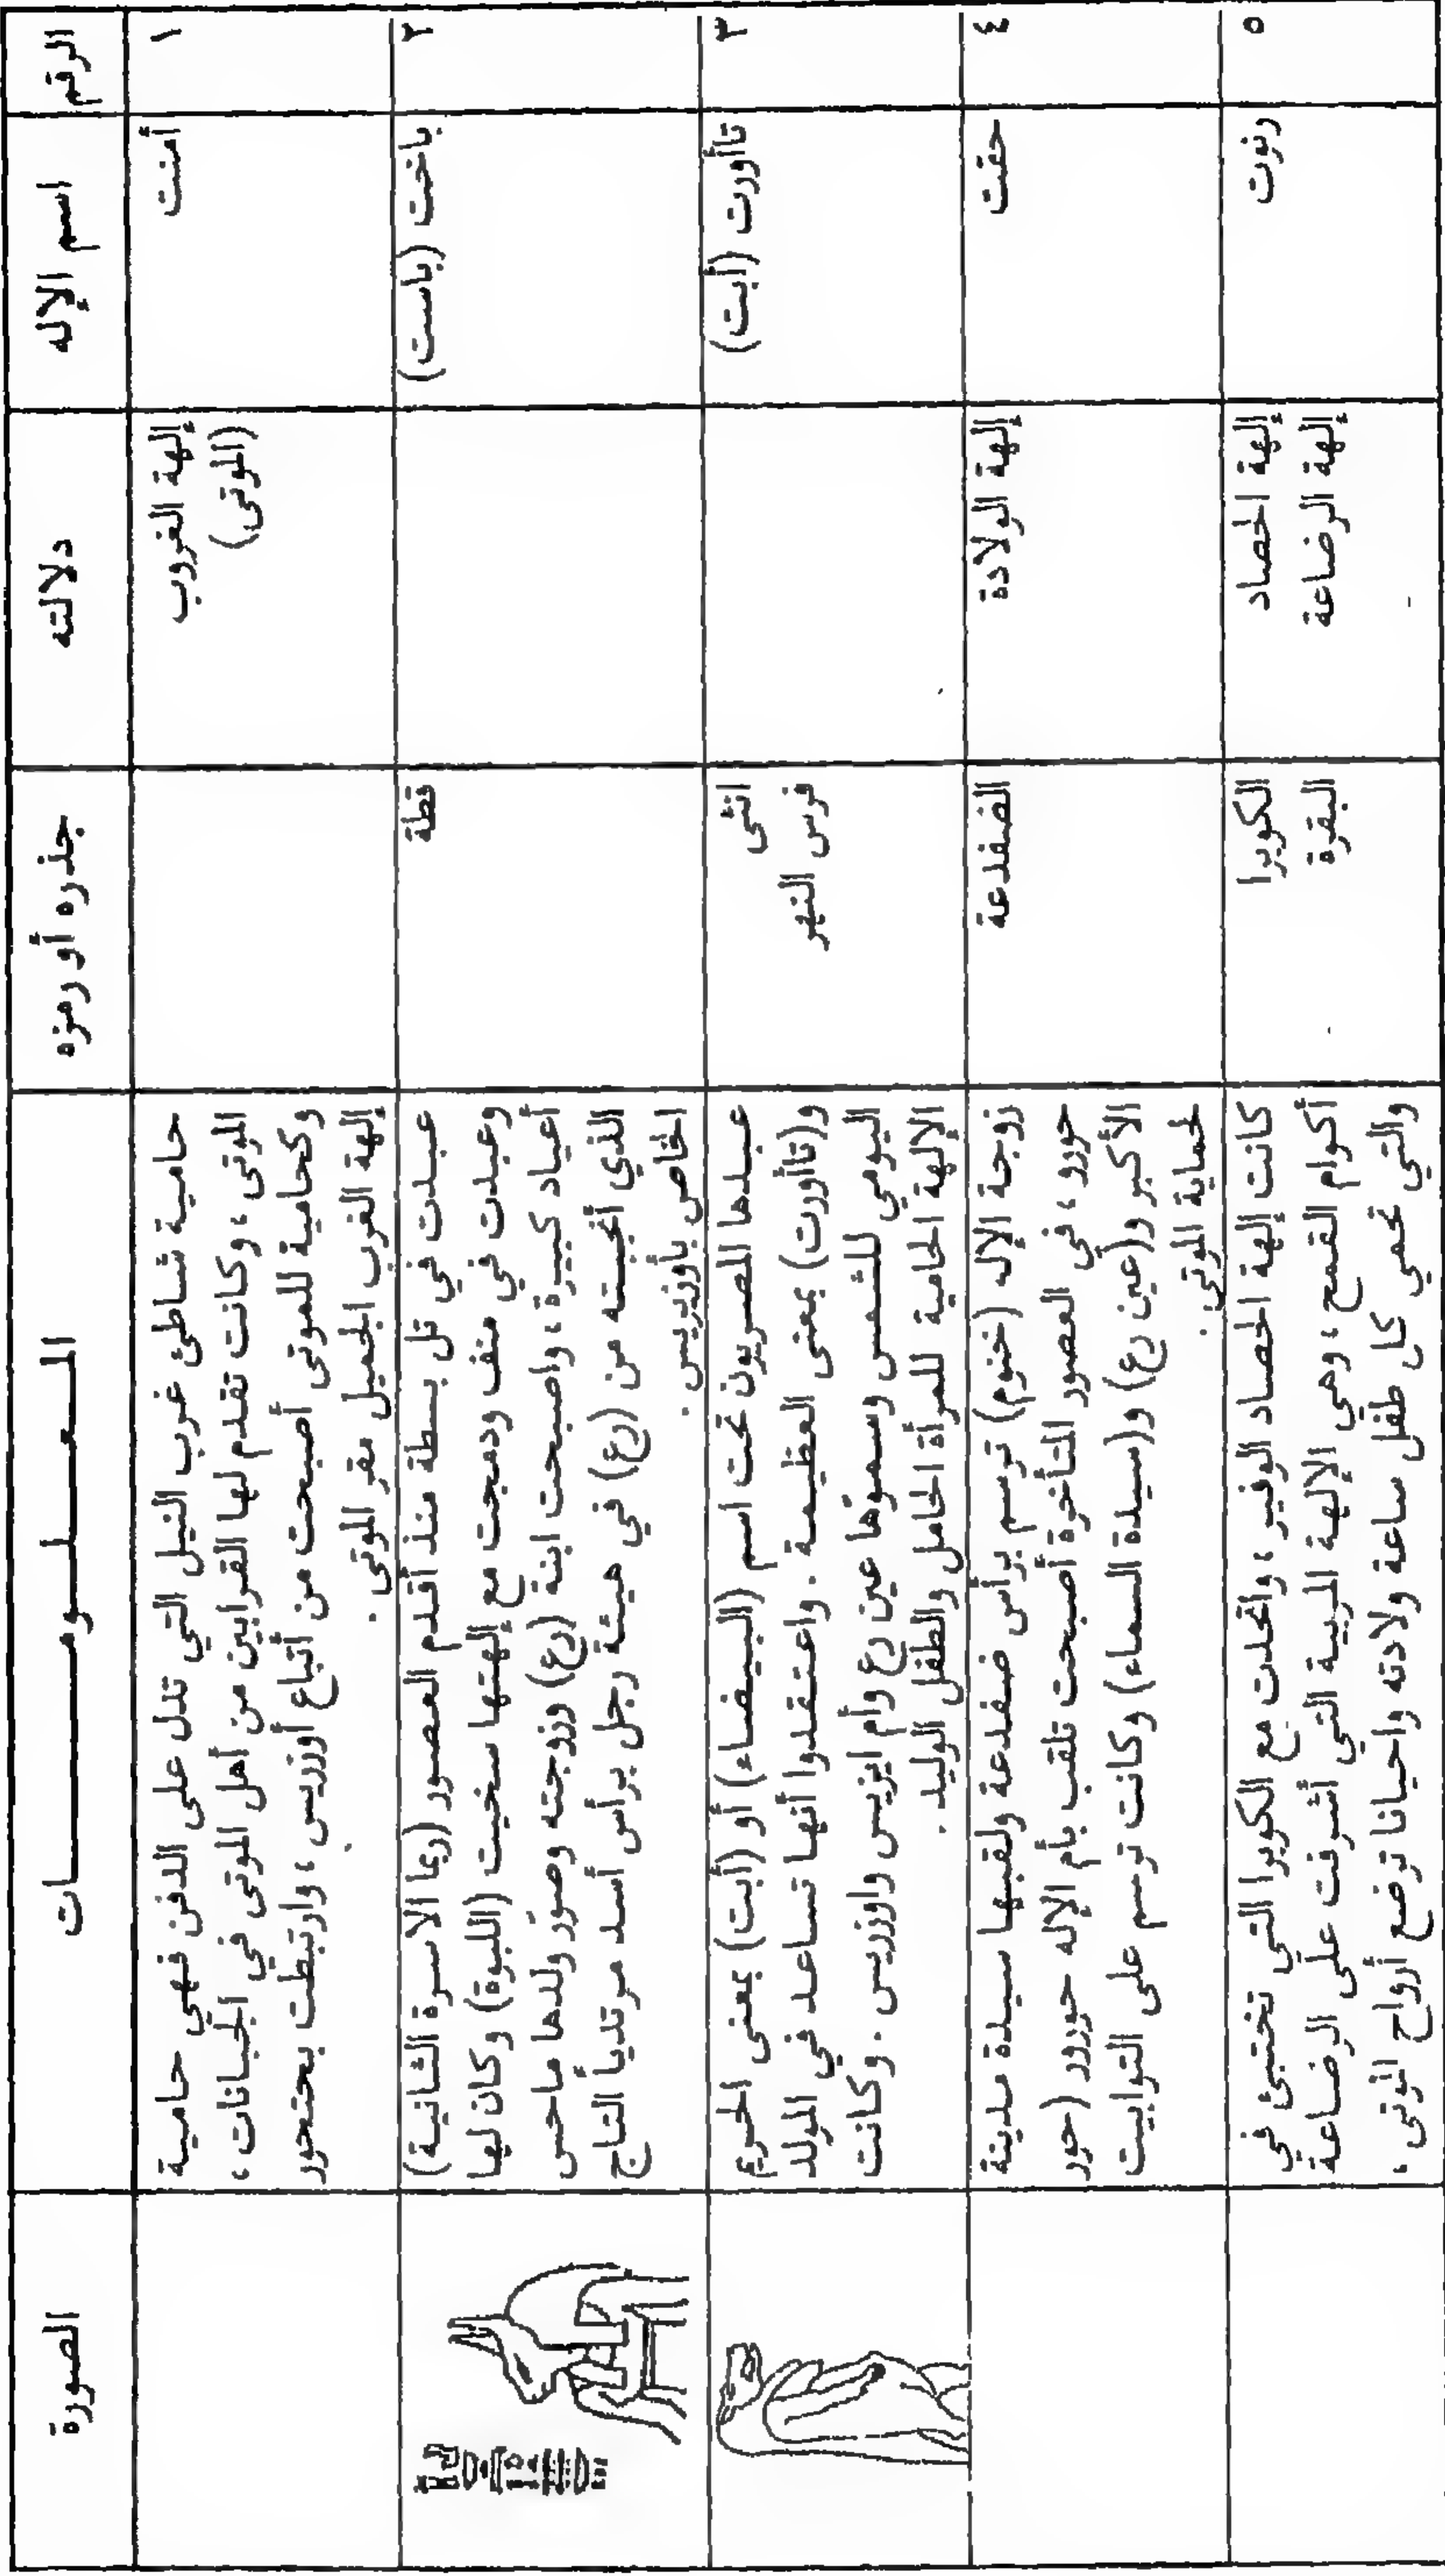 الرقم
اسم الإله
دلالته
جذره أو رمزه
المعلومات
الصورة
١
أمنت
إلهة الغروب
(الموتى)
حامية شاطئ غرب النيل التي تدل على الدفن فهي حامية
الموتى، وكانت تقدم لها القرابين من أهل الموتى في الجبانات،
وكحامية للموتى أصبحت من أتباع أوزريس، وارتبطت بحتحور
إلهة الغرب الجميل مقر الموتى.
٢
باخت (باست)
قطة
عبدت في تل بسطة منذ أقدم العصور (ربما الاسرة الثانية)
وعبدت في منف ودمجت مع إلهتها سخيت (اللبوة) وكان لها
أعياد كبيرة، واصبحت ابنة (رع) وزوجته وصوّر ولدها ماحس
الذي أنجبته من (رع) في هيئة رجل برأس أسد مرتدياً التاج
الخاص بأوزيريس.
٣
تاأورت (أبت)
انثى
فرس النهر
عبدها المصريون تحت اسم (البيضاء) أو (أبت) بمعنى الحريم
و(تاأورت) بمعنى العظيمة. واعتقدوا أنها تساعد في المولد
اليومي للشمس وسموّها عين رع وأم ايزيس واوزريس. وكانت
الإلهة الحامية للمرأة الحامل والطفل الوليد.
٤
حقت
إلهة الولادة
الضفدعة
زوجة الإله (خنوم) ترسم برأس ضفدعة ولقبها سيدة مدينة
حورو، في العصور المتأخرة أصبحت تلقب بأم الإله حورور (حور
الأكبر و(عين رع) و(سيدة السماء) وكانت ترسم على التوابيت
لحماية الموتى.
٥
رنوت
إلهة الحصاد
إلهة الرضاعة
الكوبرا
البقرة
كانت إلهة الحصاد الوفير، واتحدت مع الكوبرا التي تختبئ في
أكوام القمح، وهي الإلهة المربية التي أشرفت على الرضاعة
والتي تحمي كل طفل ساعة ولادته واحيانا ترضع أرواح الموتى،